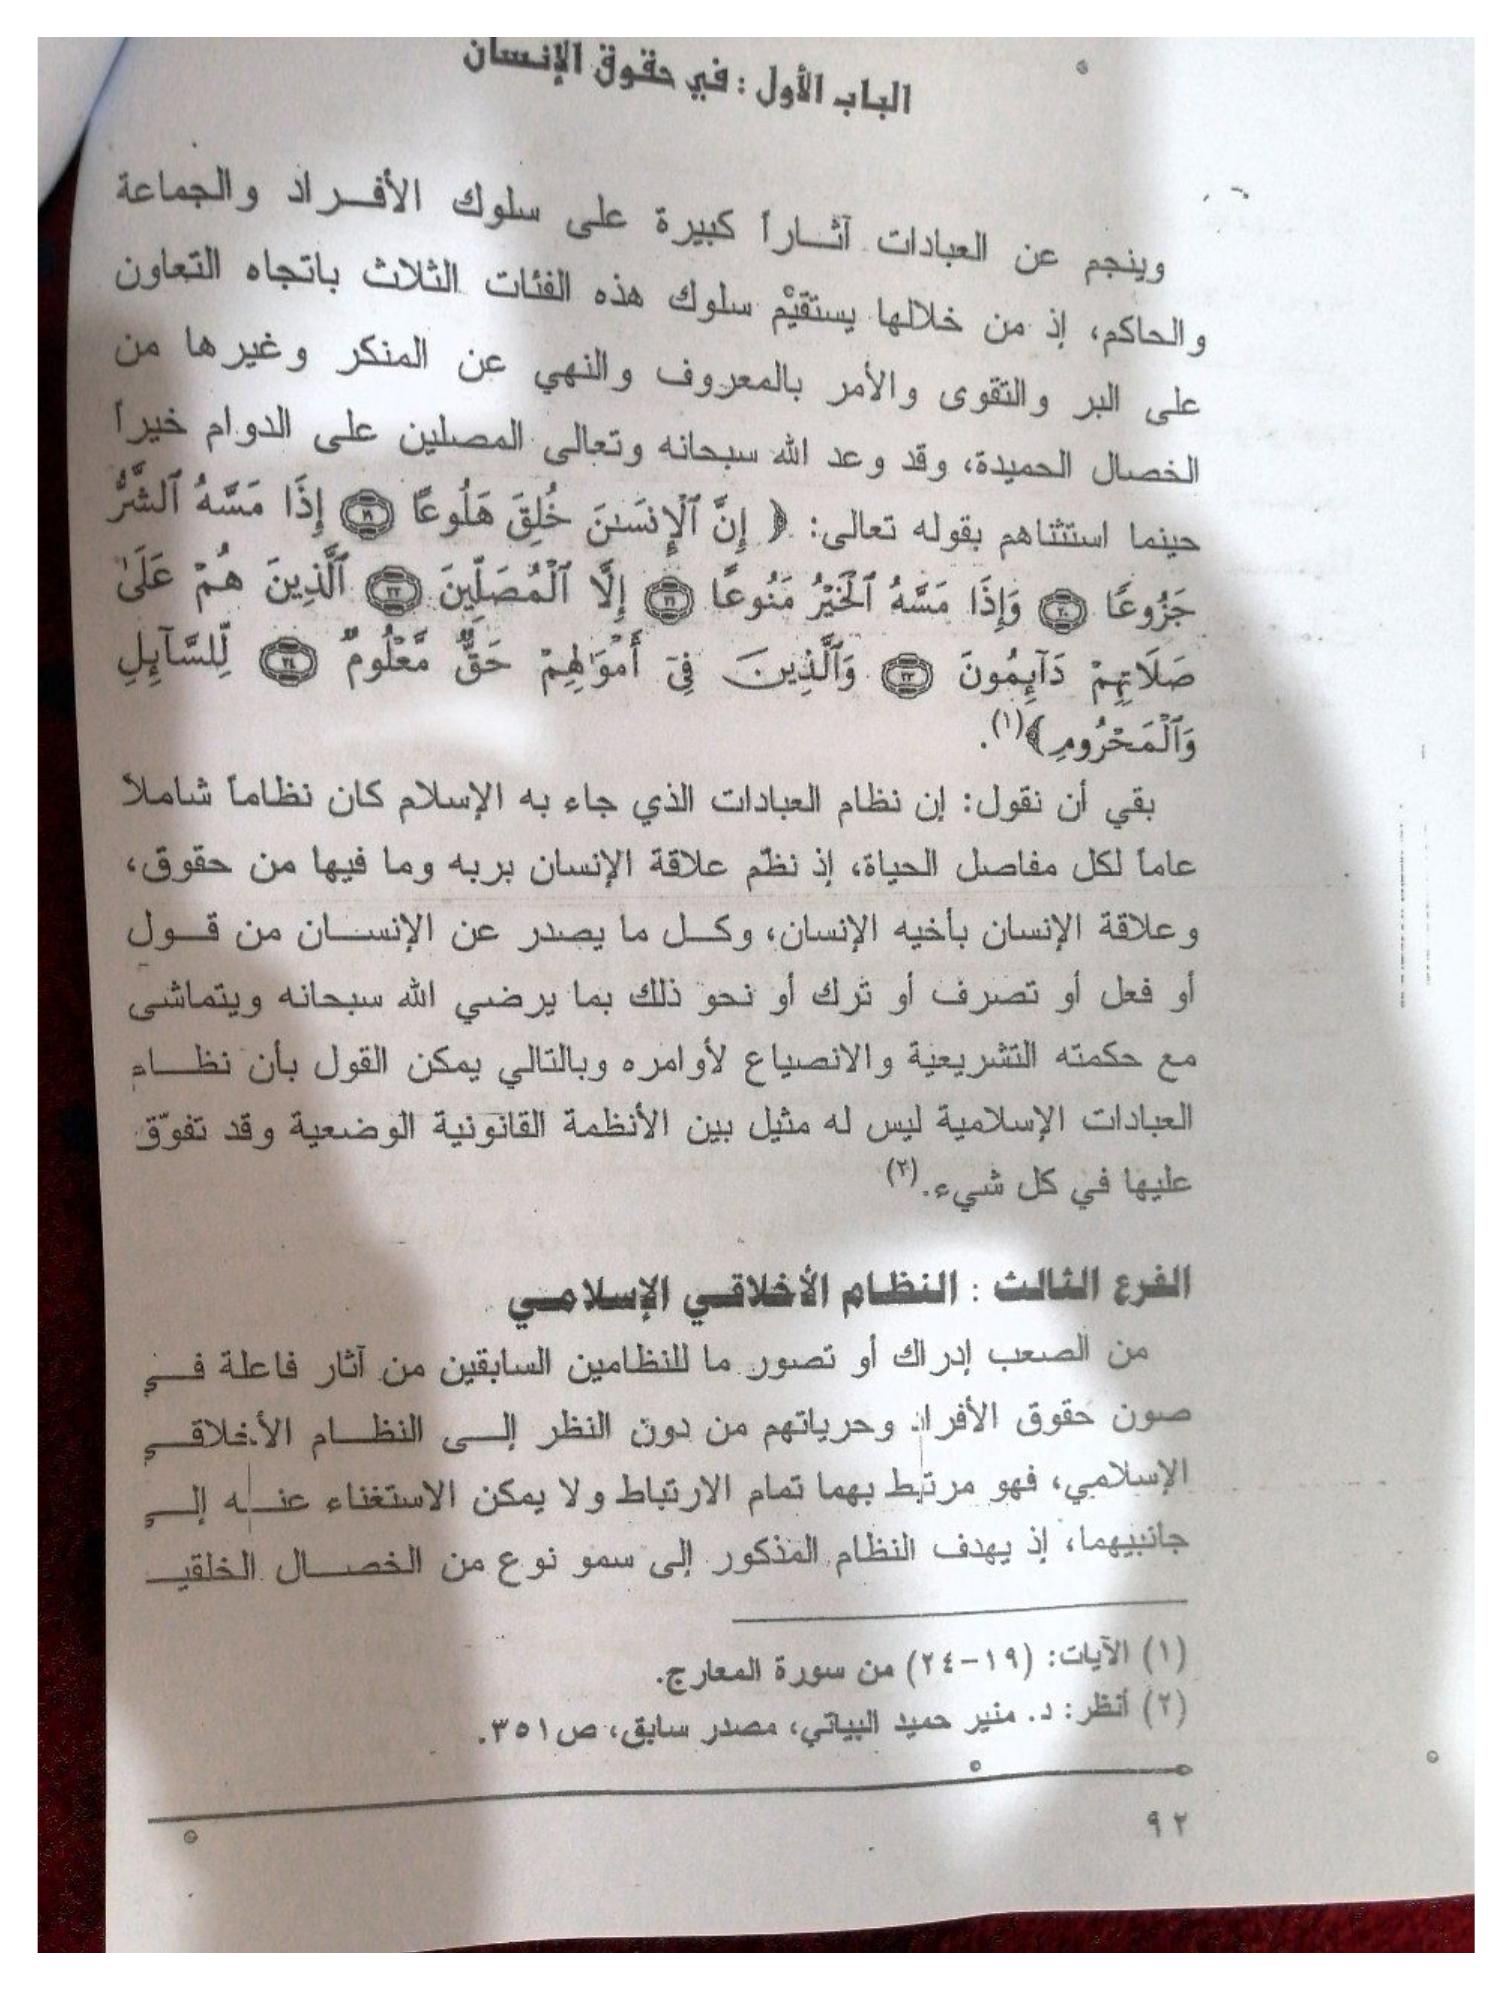 الباب الأول : في حقوق الإنسان
وينجم عن العبادات آثـــاراً كبيرة على سلوك الأفـــراد والجماعة
والحاكم، إذ من خلالها يستقيْم سلوك هذه الفئات الثلاث باتجاه التعاون
على البر والتقوى والأمر بالمعروف والنهي عن المنكر وغيرها من
الخصال الحميدة، وقد وعد الله سبحانه وتعالى المصلين على الدوام خيراً
حينما استثناهم بقوله تعالى: ﴿ إِنَّ ٱلْإِنسَـٰنَ خُلِقَ هَلُوعًا ١٩ إِذَا مَسَّهُ ٱلشَّرُّ
جَزُوعًا ٢٠ وَإِذَا مَسَّهُ ٱلْخَيْرُ مَنُوعًا ٢١ إِلَّا ٱلْمُصَلِّينَ ٢٢ ٱلَّذِينَ هُمْ عَلَىٰ
صَلَاتِهِمْ دَآئِمُونَ ٢٣ وَٱلَّذِينَ فِىٓ أَمْوَٰلِهِمْ حَقٌّ مَّعْلُومٌ ٢٤ لِّلسَّآئِلِ
وَٱلْمَحْرُومِ﴾(١).
بقي أن نقول: إن نظام العبادات الذي جاء به الإسلام كان نظاماً شاملاً
عاماً لكل مفاصل الحياة، إذ نظّم علاقة الإنسان بربه وما فيها من حقوق،
وعلاقة الإنسان بأخيه الإنسان، وكــل ما يصدر عن الإنســـان من قـــول
أو فعل أو تصرف أو ترك أو نحو ذلك بما يرضي الله سبحانه ويتماشى
مع حكمته التشريعية والانصياع لأوامره وبالتالي يمكن القول بأن نظـــام
العبادات الإسلامية ليس له مثيل بين الأنظمة القانونية الوضعية وقد تفوّق
عليها في كل شيء.(٢)
الفرع الثالث : النظام الأخلاقي الإسلامي
من الصعب إدراك أو تصور ما للنظامين السابقين من آثار فاعلة فـــي
صون حقوق الأفراد وحرياتهم من دون النظر إلـــى النظـــام الأخلاقـــي
الإسلامي، فهو مرتبط بهما تمام الارتباط ولا يمكن الاستغناء عنـــه إلـــى
جانبيهما، إذ يهدف النظام المذكور إلى سمو نوع من الخصـــال الخلقيـــ
(١) الآيات: (١٩-٢٤) من سورة المعارج.
(٢) أنظر: د. منير حميد البياتي، مصدر سابق، ص٣٥١.
٩٢